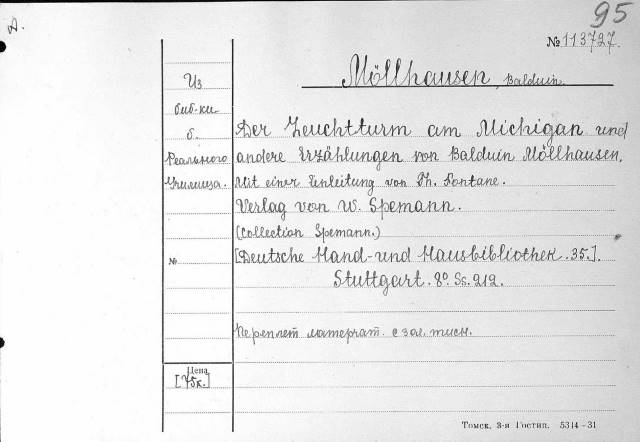 A.
95
№ 113727.
Möllhausen, Balduin.
Из
биб-ки
б.
Реального
Училища.
Der Leuchtturm am Michigan und
andere Erzählungen von Balduin Möllhausen.
Mit einer Einleitung von Th. Fontane.
Verlag von W. Spemann.
(Collection Spemann.)
№
[Deutsche Hand- und Hausbibliothek. 35.].
Stuttgart. 8º. Ss. 212.
Переплет матерчат. с зол. тисн.
Цена
[75к.]
Томск. 3-я Гостип. 5314-31